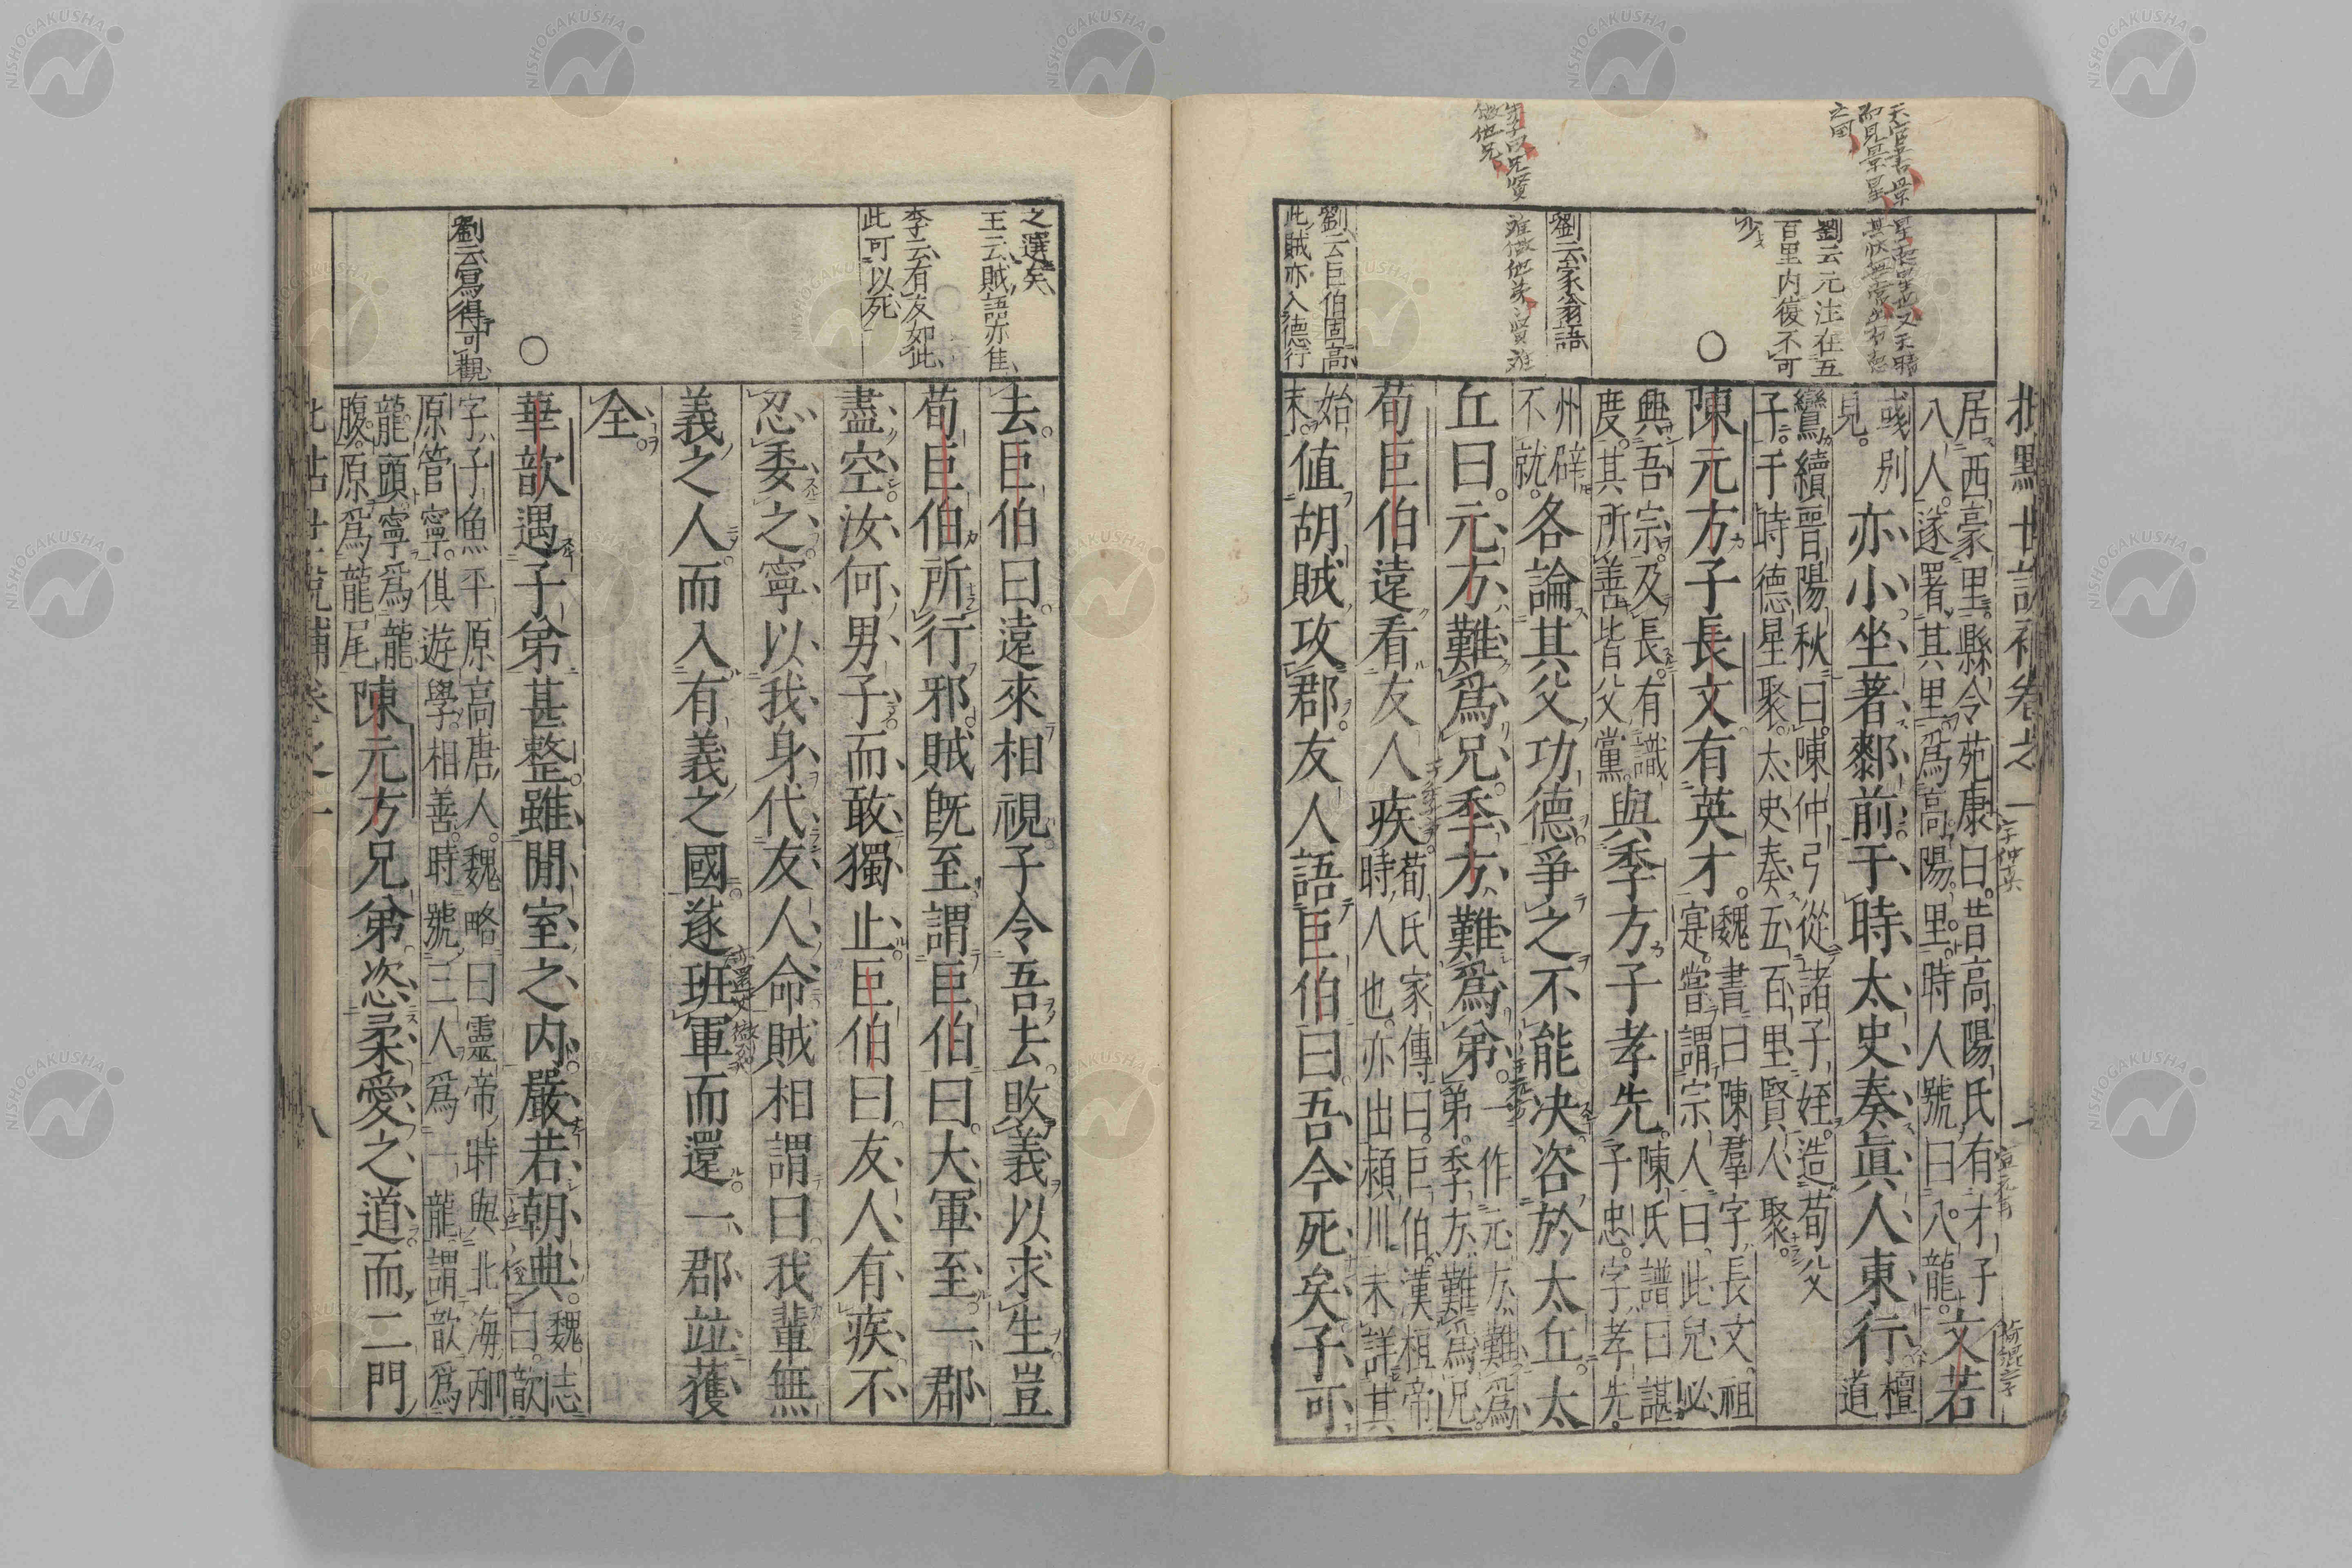 批點世說補卷之一
居西豪里。縣令苑康曰。昔高陽氏有才子
八人。遂署其里爲高陽里。時人號曰八龍。
文若
彧別
見。
亦小坐著厀前于時太史奏眞人東行
檀
道
鸞續晉陽秋曰。陳仲弓從諸子姪。造荀父
子。于時德星聚。太史奏五百里賢人聚。
陳元方子長文有英才。
魏書曰陳羣字長文。祖
寔。嘗謂宗人曰此兒必
興吾宗。及長。有識
度。其所善皆父黨。
與季方子孝先。
陳氏譜曰諶
子忠。字孝先。
州辟
不就。
各論其父功德。爭之不能决咨於太丘。太
丘曰。元方難爲兄。季方難爲弟。
一作元方難爲
弟。季方難爲兄。
荀巨伯遠看友人疾
荀氏家傳曰。巨伯。漢桓帝
時人也。亦出潁川未詳其
始
末。
值胡賊攻郡。友人語巨伯曰吾今死矣子可
劉云元注在五
百里内復不可
少
劉云家翁語
劉云巨伯固高
此賊亦入德行
之選矣
王云賊語亦佳
李云有友如此
此可以死
劉云寫得可觀
去。巨伯曰。遠來相視。子令吾去。敗義以求生豈
荀巨伯所行邪。賊既至謂巨伯曰。大軍至。一郡
盡空。汝何男子。而敢獨止。巨伯曰友人有疾不
忍委之。寧以我身代友人命賊相謂曰。我輩無
義之人。而入有義之國。遂班軍而還。一郡竝獲
全。
華歆遇子弟甚整。雖閒室之内。嚴若朝典。
魏志
曰。歆
字子魚平原高唐人。魏略曰靈帝時與北海邴
原管寧。俱遊學。相善。時號三人爲一龍謂歆爲
龍頭寧爲龍
腹。原爲龍尾
陳元方兄弟。恣柔愛之道。而二門
八